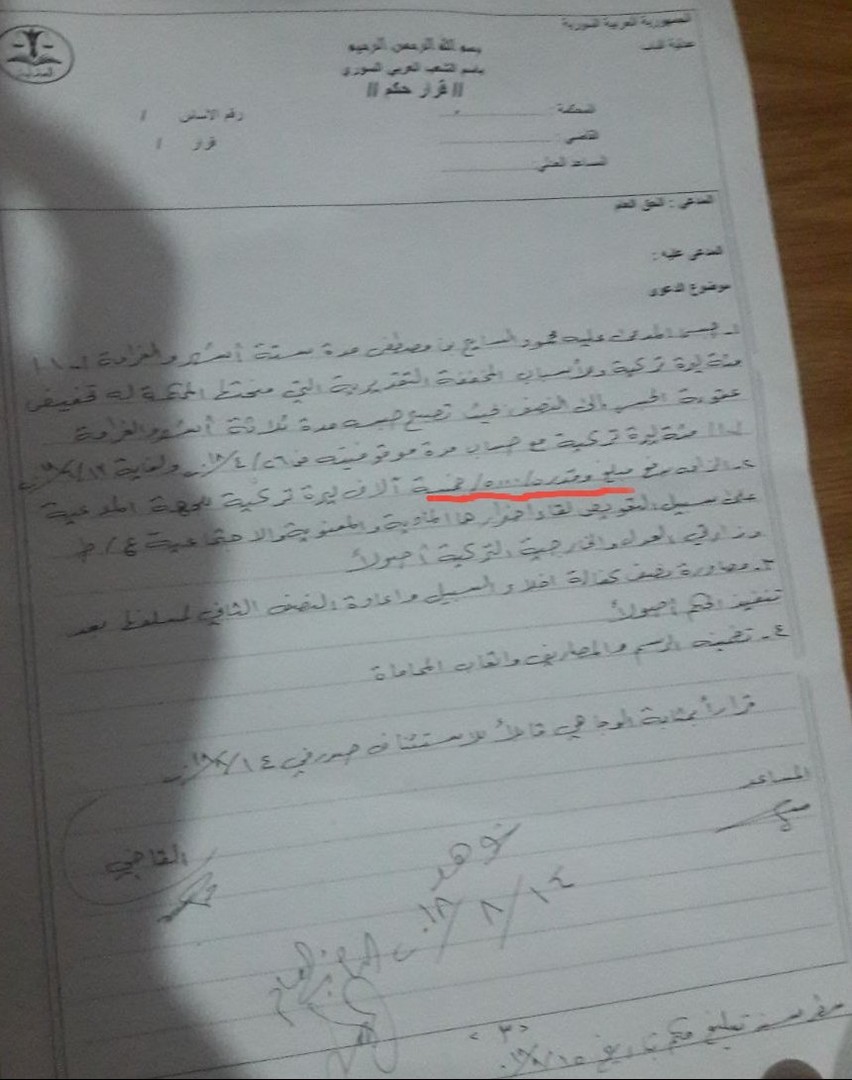 الجمهورية العربية السورية
عدلية الباب
بسم الله الرحمن الرحيم
باسم الشعب العربي السوري
// قرار حكم //
المحكمة :
رقم الاساس /
القاضي :
قرار /
المساعد العدلي:
المدعي : الحق العام
المدعى عليه :
موضوع الدعوى
١- حبس المدعى عليه محمود السايح بن مصطفى مدة ستة أشهر والغرامة /١٠٠/
مئة ليرة تركية وللأسباب المخففة التقديرية التي منحتها المحكمة له تخفيض
عقوبة الحبس إلى النصف بحيث تصبح حبسه مدة ثلاثة أشهر والغرامة
/١٠٠/ مئة ليرة تركية مع حساب مدة موقوفيته من ٢٦/٤/ ولغاية
٢- الزامه بدفع مبلغ وقدره /٥٠٠٠/ خمسة آلاف ليرة تركية للجهة المدعية
على سبيل التعويض لقاء اضرارها المادية والمعنوية والاجتماعية
وزارتي العدل والخارجية التركية أصولاً
٣- مصادرة نصف كفالة اخلاء السبيل واعادة النصف الثاني بعد
تنفيذ الحكم أصولاً
٤- تضمينه الرسم والمصاريف واتعاب المحاماة
قراراً بمثابة الوجاهي قابلاً للاستئناف صدر في ١٤
المساعد
القاضي
شوهد
١٤/٨/٠١٨
<٣>